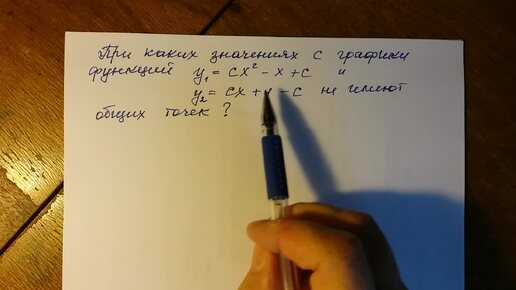 При каких значениях с графики
функций y₁ = cx² - x + c и
y₂ = cx + - c не имеют
общих точек ?